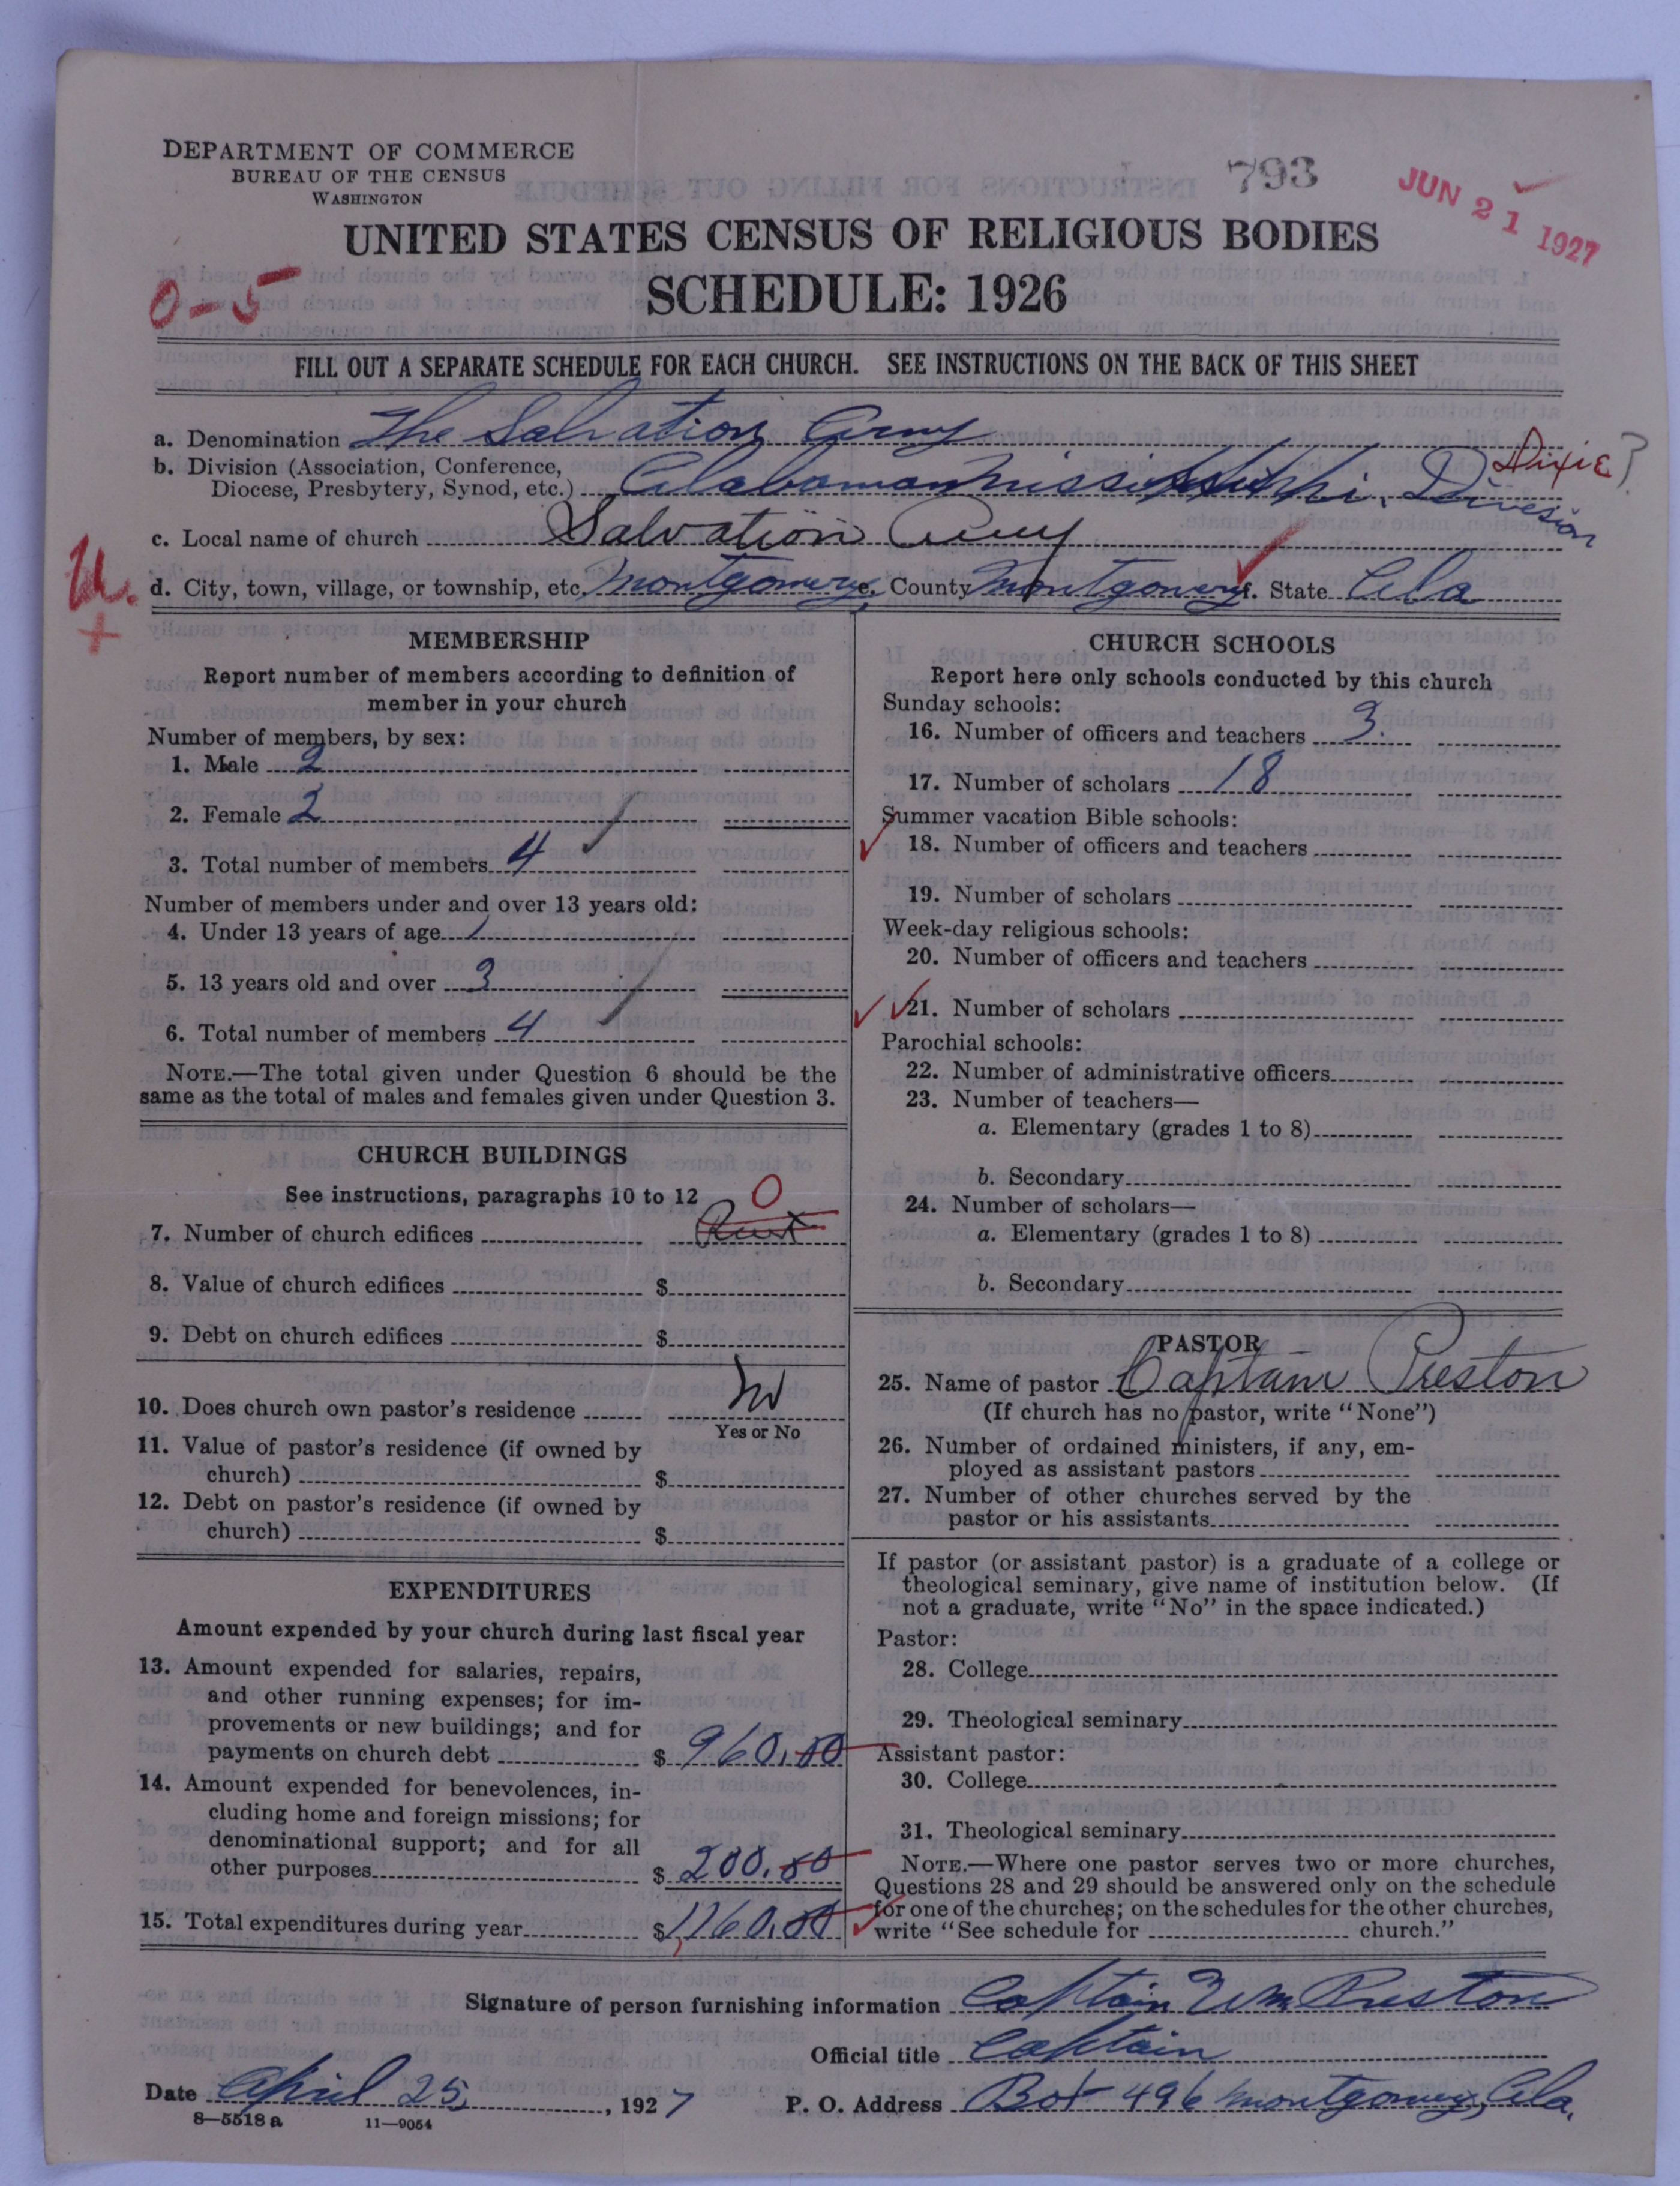 DEPARTMENT OF COMMERCE
BUREAU OF THE CENSUS
WASHINGTON
793
JUN 21 1927
UNITED STATES CENSUS OF RELIGIOUS BODIES
SCHEDULE: 1926
0-5
FILL OUT A SEPARATE SCHEDULE FOR EACH CHURCH. SEE INSTRUCTIONS ON THE BACK OF THIS SHEET
a. Denomination The Salvation Army
b. Division (Association, Conference, Diocese, Presbytery, Synod, etc.) Alabama Mississippi. Division Dixie?
c. Local name of church Salvation Army
U. +
d. City, town, village, or township, etc. Montgomery e. County Montgomery f. State Ala
MEMBERSHIP
Report number of members according to definition of
member in your church
Number of members, by sex:
1. Male 2
2. Female 2
3. Total number of members 4
Number of members under and over 13 years old:
4. Under 13 years of age 1
5. 13 years old and over 3
6. Total number of members 4
NOTE.—The total given under Question 6 should be the
same as the total of males and females given under Question 3.
CHURCH BUILDINGS
See instructions, paragraphs 10 to 12
0
7. Number of church edifices Rent
8. Value of church edifices $
9. Debt on church edifices $
10. Does church own pastor's residence No
Yes or No
11. Value of pastor's residence (if owned by
church) $
12. Debt on pastor's residence (if owned by
church) $
EXPENDITURES
Amount expended by your church during last fiscal year
13. Amount expended for salaries, repairs,
and other running expenses; for im-
provements or new buildings; and for
payments on church debt $ 960.00
14. Amount expended for benevolences, in-
cluding home and foreign missions; for
denominational support; and for all
other purposes $ 200.00
15. Total expenditures during year $ 1,160.00
CHURCH SCHOOLS
Report here only schools conducted by this church
Sunday schools:
16. Number of officers and teachers 3.
17. Number of scholars 18
Summer vacation Bible schools:
18. Number of officers and teachers
19. Number of scholars
Week-day religious schools:
20. Number of officers and teachers
21. Number of scholars
Parochial schools:
22. Number of administrative officers
23. Number of teachers—
a. Elementary (grades 1 to 8)
b. Secondary
24. Number of scholars—
a. Elementary (grades 1 to 8)
b. Secondary
PASTOR
25. Name of pastor Captain Preston
(If church has no pastor, write "None")
26. Number of ordained ministers, if any, em-
ployed as assistant pastors
27. Number of other churches served by the
pastor or his assistants
If pastor (or assistant pastor) is a graduate of a college or
theological seminary, give name of institution below. (If
not a graduate, write "No" in the space indicated.)
Pastor:
28. College
29. Theological seminary
Assistant pastor:
30. College
31. Theological seminary
NOTE.—Where one pastor serves two or more churches,
Questions 28 and 29 should be answered only on the schedule
for one of the churches; on the schedules for the other churches,
write "See schedule for church."
Signature of person furnishing information Captain Wm Preston
Official title Captain
Date April 25, 1927 P. O. Address Box 496 Montgomery, Ala.
8—5518 a 11—9054